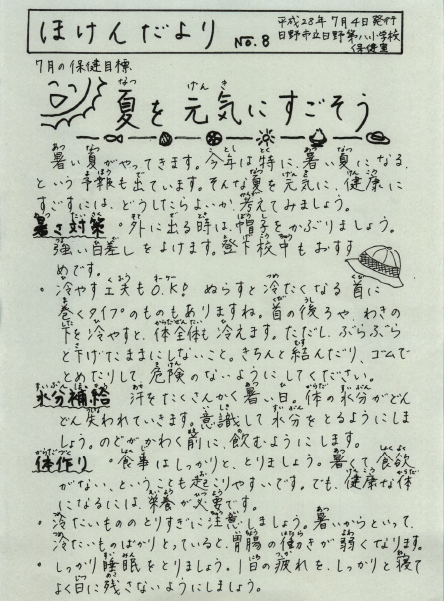 ほけんだより No.8
平成28年7月4日発行
日野市立日野第八小学校
保健室
7月の保健目標
夏を元気にすごそう
暑い夏がやってきます。今年は特に、暑い夏になる、
という予報も出ています。そんな夏を元気に、健康に
すごすには、どうしたらよいか、考えてみましょう。
暑さ対策 ・外に出る時は、帽子をかぶりましょう。
強い日差しをよけます。登下校中もおすす
めです。
・冷やす工夫もO.K! ぬらすと冷たくなる首に
巻くタイプのものもありますね。首の後ろや、わきの
下を冷やすと、体全体も冷えます。ただし、ぶらぶら
と下げたままにしないこと。きちんと結んだり、ゴムで
とめたりして、危険のないようにしてください。
水分補給 汗をたくさんかく暑い日。体の水分がどん
どん失われていきます。意識して水分をとるようにしま
しょう。のどがかわく前に、飲むようにします。
体作り ・食事はしっかりと、とりましょう。暑くて食欲
がない、ということも起こりやすいです。でも、健康な体
になるには、栄養が必要です。
・冷たいもののとりすぎに注意しましょう。暑いからといって、
冷たいものばかりとっていると、胃腸の働きが弱くなります。
・しっかり睡眠をとりましょう。1日の疲れを、しっかりと寝て
よく日に残さないようにしましょう。